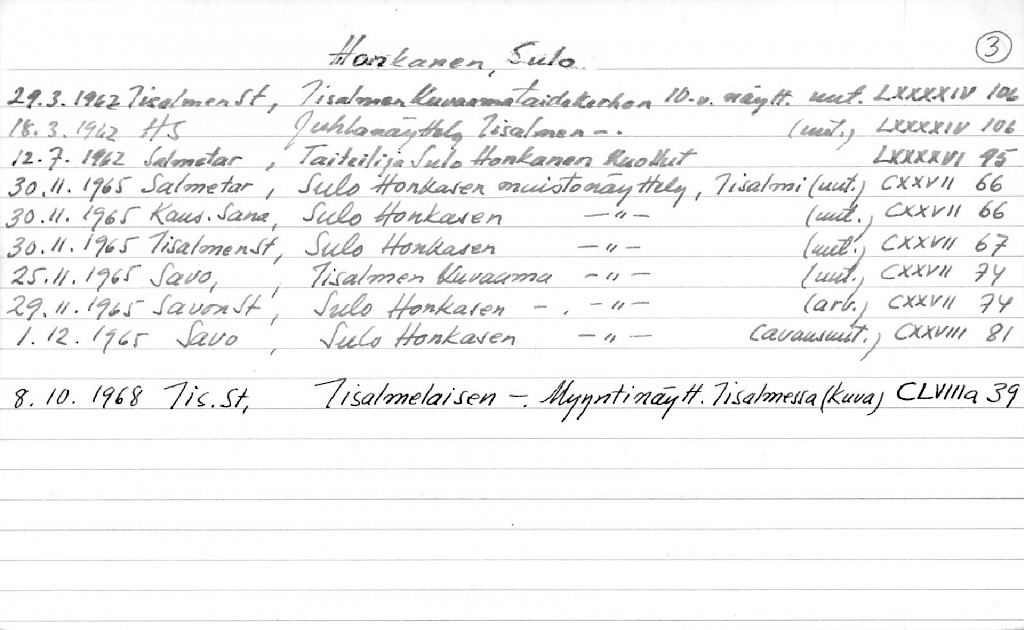 3
Honkanen, Sulo
29.3.1962 Iisalmen St, Iisalmen Kuvaamataidekerhon 10-v. näytt. uut. LXXXXIV 106
18.3.1962 HS Juhlanäyttely Iisalmen -. (uut.) LXXXXIV 106
12.7.1962 Salmetar, Taiteilija Sulo Honkanen kuollut LXXXXVI 95
30.11.1965 Salmetar, Sulo Honkasen muistonäyttely, Iisalmi (uut.) CXXVII 66
30.11.1965 Kans. Sana, Sulo Honkasen -"- (uut.) CXXVII 66
30.11.1965 Iisalmen St, Sulo Honkasen -"- (uut.) CXXVII 67
25.11.1965 Savo, Iisalmen Kuvaama -"- (uut.) CXXVII 74
29.11.1965 Savon St, Sulo Honkasen -. -"- (arv.) CXXVII 74
1.12.1965 Savo, Sulo Honkasen -"- (avausuut.) CXXVIII 81
8.10.1968 Iis. St, Iisalmelaisen -. Myyntinäytt. Iisalmessa (kuva) CLVIIIa 39